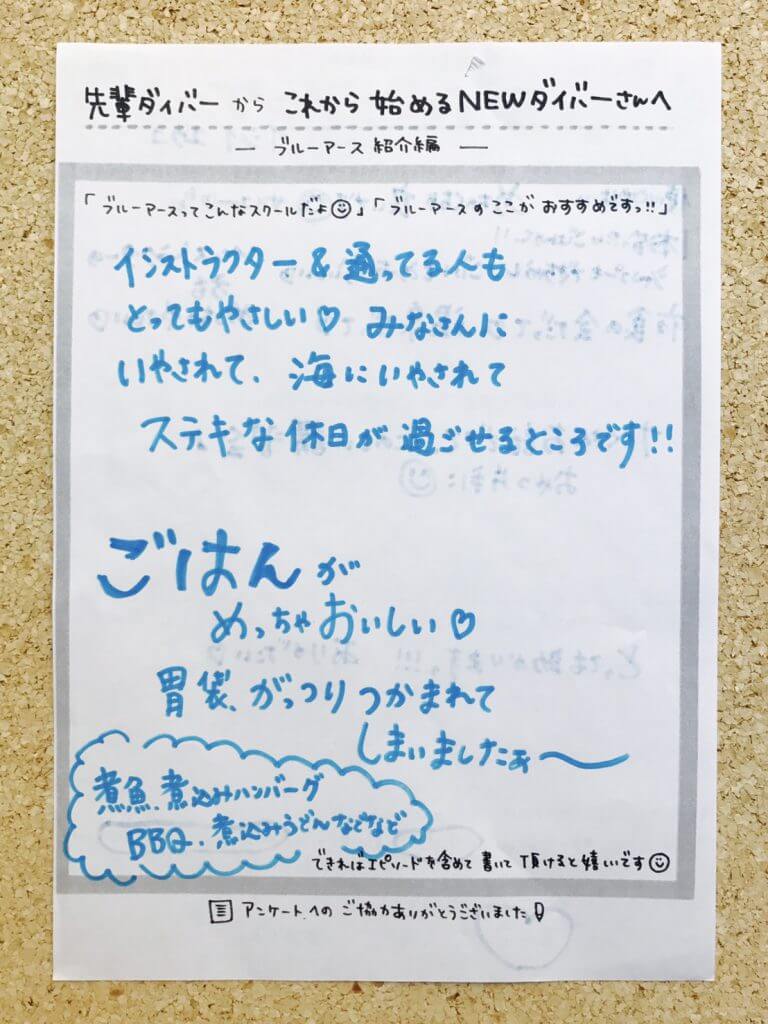 先輩ダイバーから これから 始める NEWダイバーさんへ
― ブルーアース 紹介編 ―
「ブルーアースってこんなスクールだよ☺」「ブルーアースのここが おすすめですっ!!」
インストラクター & 通ってる人も
とってもやさしい♡ みなさんに
いやされて、海にいやされて
ステキな休日が過ごせるところです!!
ごはんが
めっちゃおいしい♡
胃袋、がっつりつかまれて
しまいましたぁ〜
煮魚、煮込みハンバーグ
BBQ、煮込みうどんなどなど
できればエピソードを含めて 書いて 頂けると嬉しいです☺
アンケートへの ご協力ありがとうございました